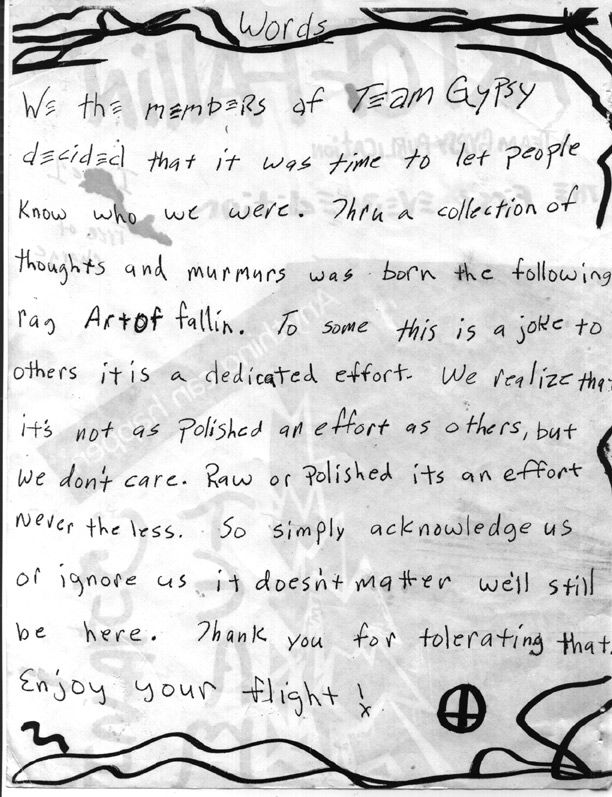 Words
We the members of Team Gypsy
decided that it was time to let people
know who we were. Thru a collection of
thoughts and murmurs was born the following
rag Art of fallin. To some this is a joke to
others it is a dedicated effort. We realize that
it's not as polished an effort as others, but
we don't care. Raw or polished its an effort
never the less. So simply acknowledge us
or ignore us it doesn't matter we'll still
be here. Thank you for tolerating that.
Enjoy your flight!